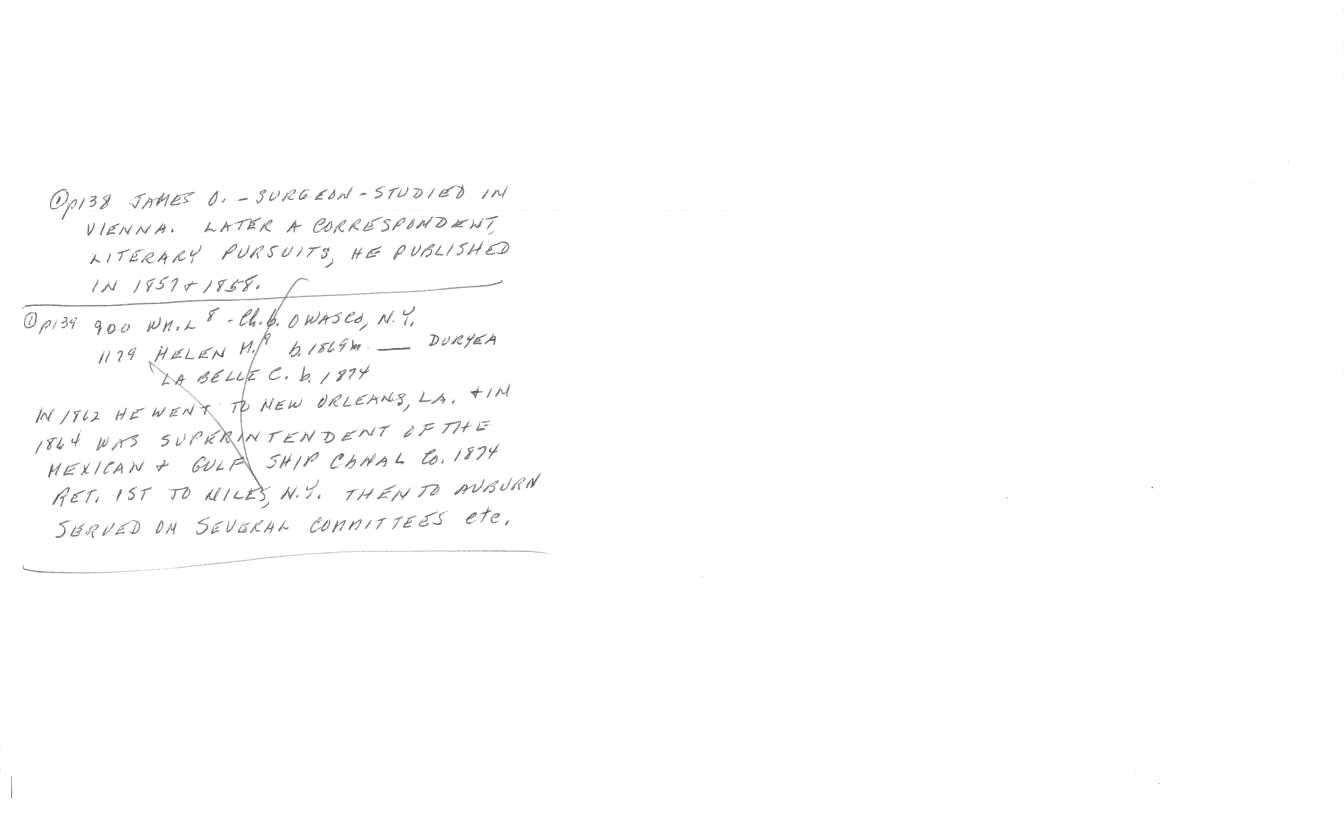 ① p138 JAMES O. - SURGEON - STUDIED IN
VIENNA. LATER A CORRESPONDENT,
LITERARY PURSUITS, HE PUBLISHED
IN 1857 + 1858.
① p139 900 WM. L 8 - Ch. b. OWASCO, N.Y.
1179 HELEN M. 9 b. 1869 m. ___ DURYEA
LA BELLE C. b. 1874
IN 1862 HE WENT TO NEW ORLEANS, LA. + IN
1864 WAS SUPERINTENDENT OF THE
MEXICAN + GULF SHIP CANAL Co. 1874
RET. 1ST TO NILES, N.Y. THEN TO AUBURN
SERVED ON SEVERAL COMMITTEES etc.